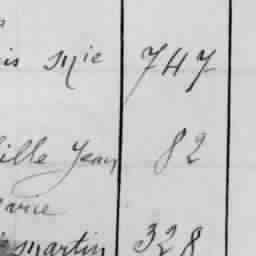 is Mie 747
ille Jean 82
arie
esmartin 328